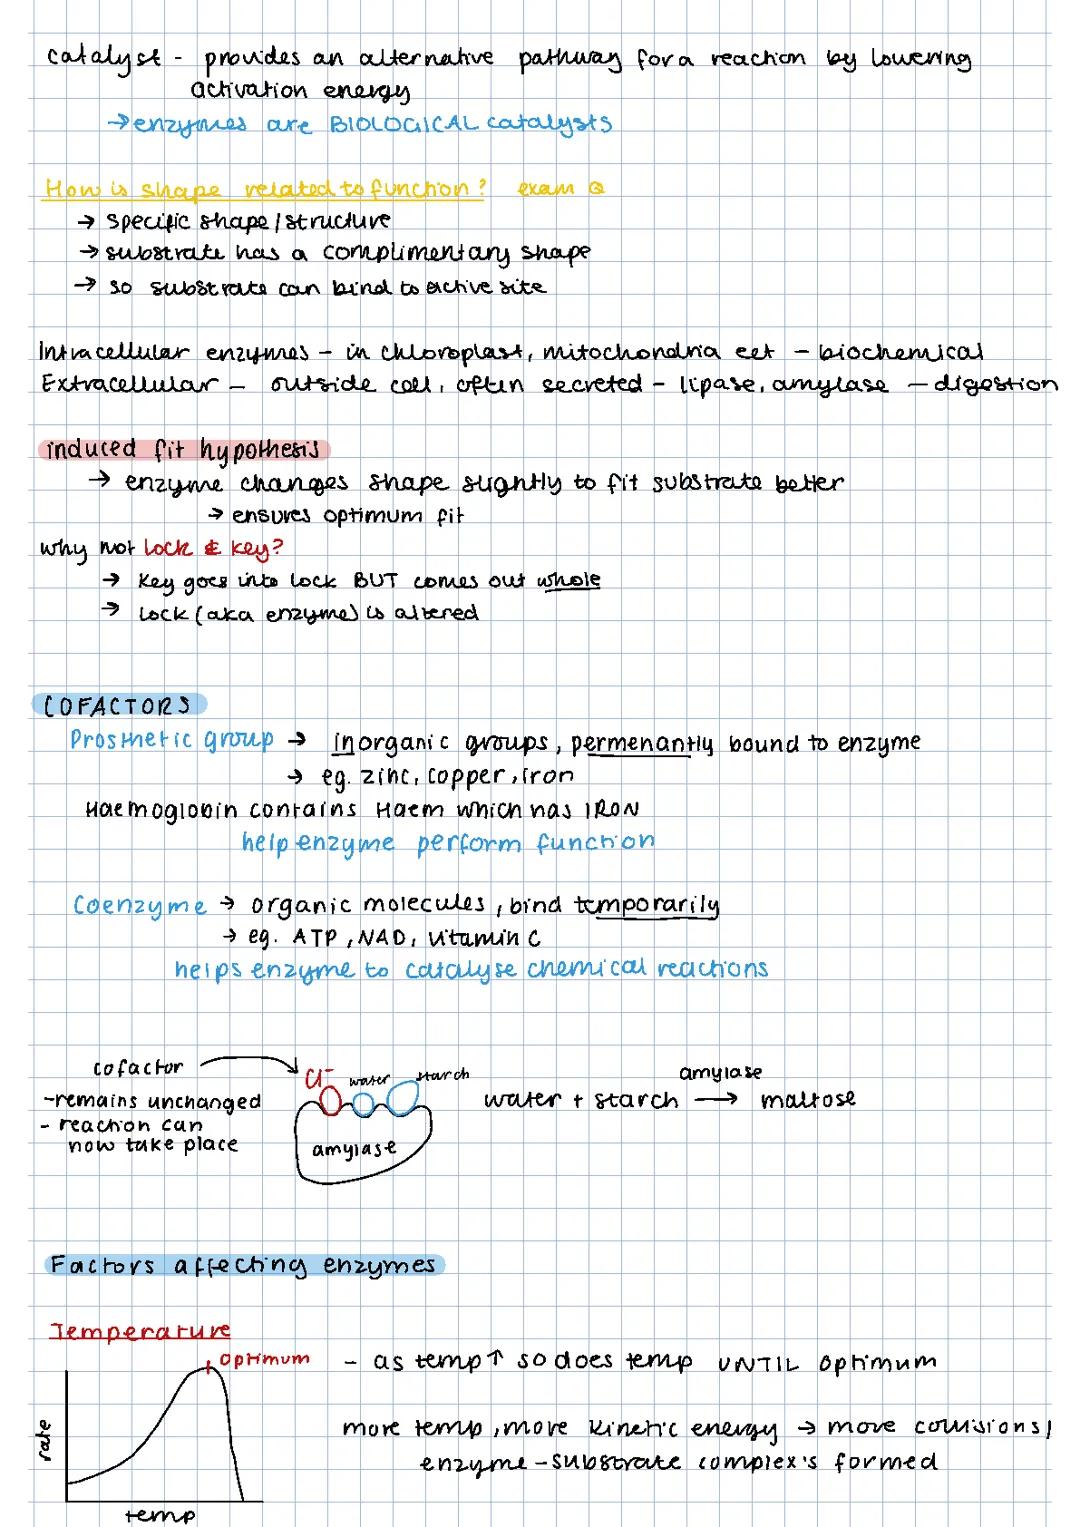 catalyst - provides an alternative pathway for a reaction by lowering
activation energy
→ enzymes are BIOLOGICAL catalysts
How is shape related to function? exam Q
→ specific shape / structure
→ substrate has a complimentary shape
→ so substrate can bind to active site
Intracellular enzymes - in chloroplast, mitochondria ect - biochemical
Extracellular - outside cell, often secreted - lipase, amylase - digestion
induced fit hypothesis
→ enzyme changes shape slightly to fit substrate better
→ ensures optimum fit
why not lock & key?
→ key goes into lock BUT comes out whole
→ lock (aka enzyme) is altered
COFACTORS
Prosthetic group → inorganic groups, permenantly bound to enzyme
→ eg. zinc, copper, iron
Haemoglobin contains Haem which has IRON
help enzyme perform function
Coenzyme → organic molecules, bind temporarily
→ eg. ATP, NAD, vitamin C
helps enzyme to catalyse chemical reactions
cofactor
-remains unchanged
- reaction can
now take place
Cl⁻ water starch
amylase
amylase
water + starch → maltose
Factors affecting enzymes
Temperature
optimum
rate
temp
- as temp ↑ so does temp UNTIL optimum
more temp, more kinetic energy → more collisions /
enzyme - substrate complex's formed